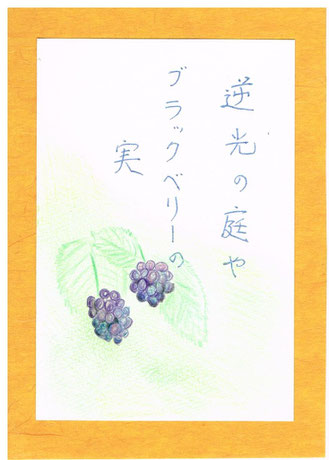 逆光の庭や
ブラックベリーの
実